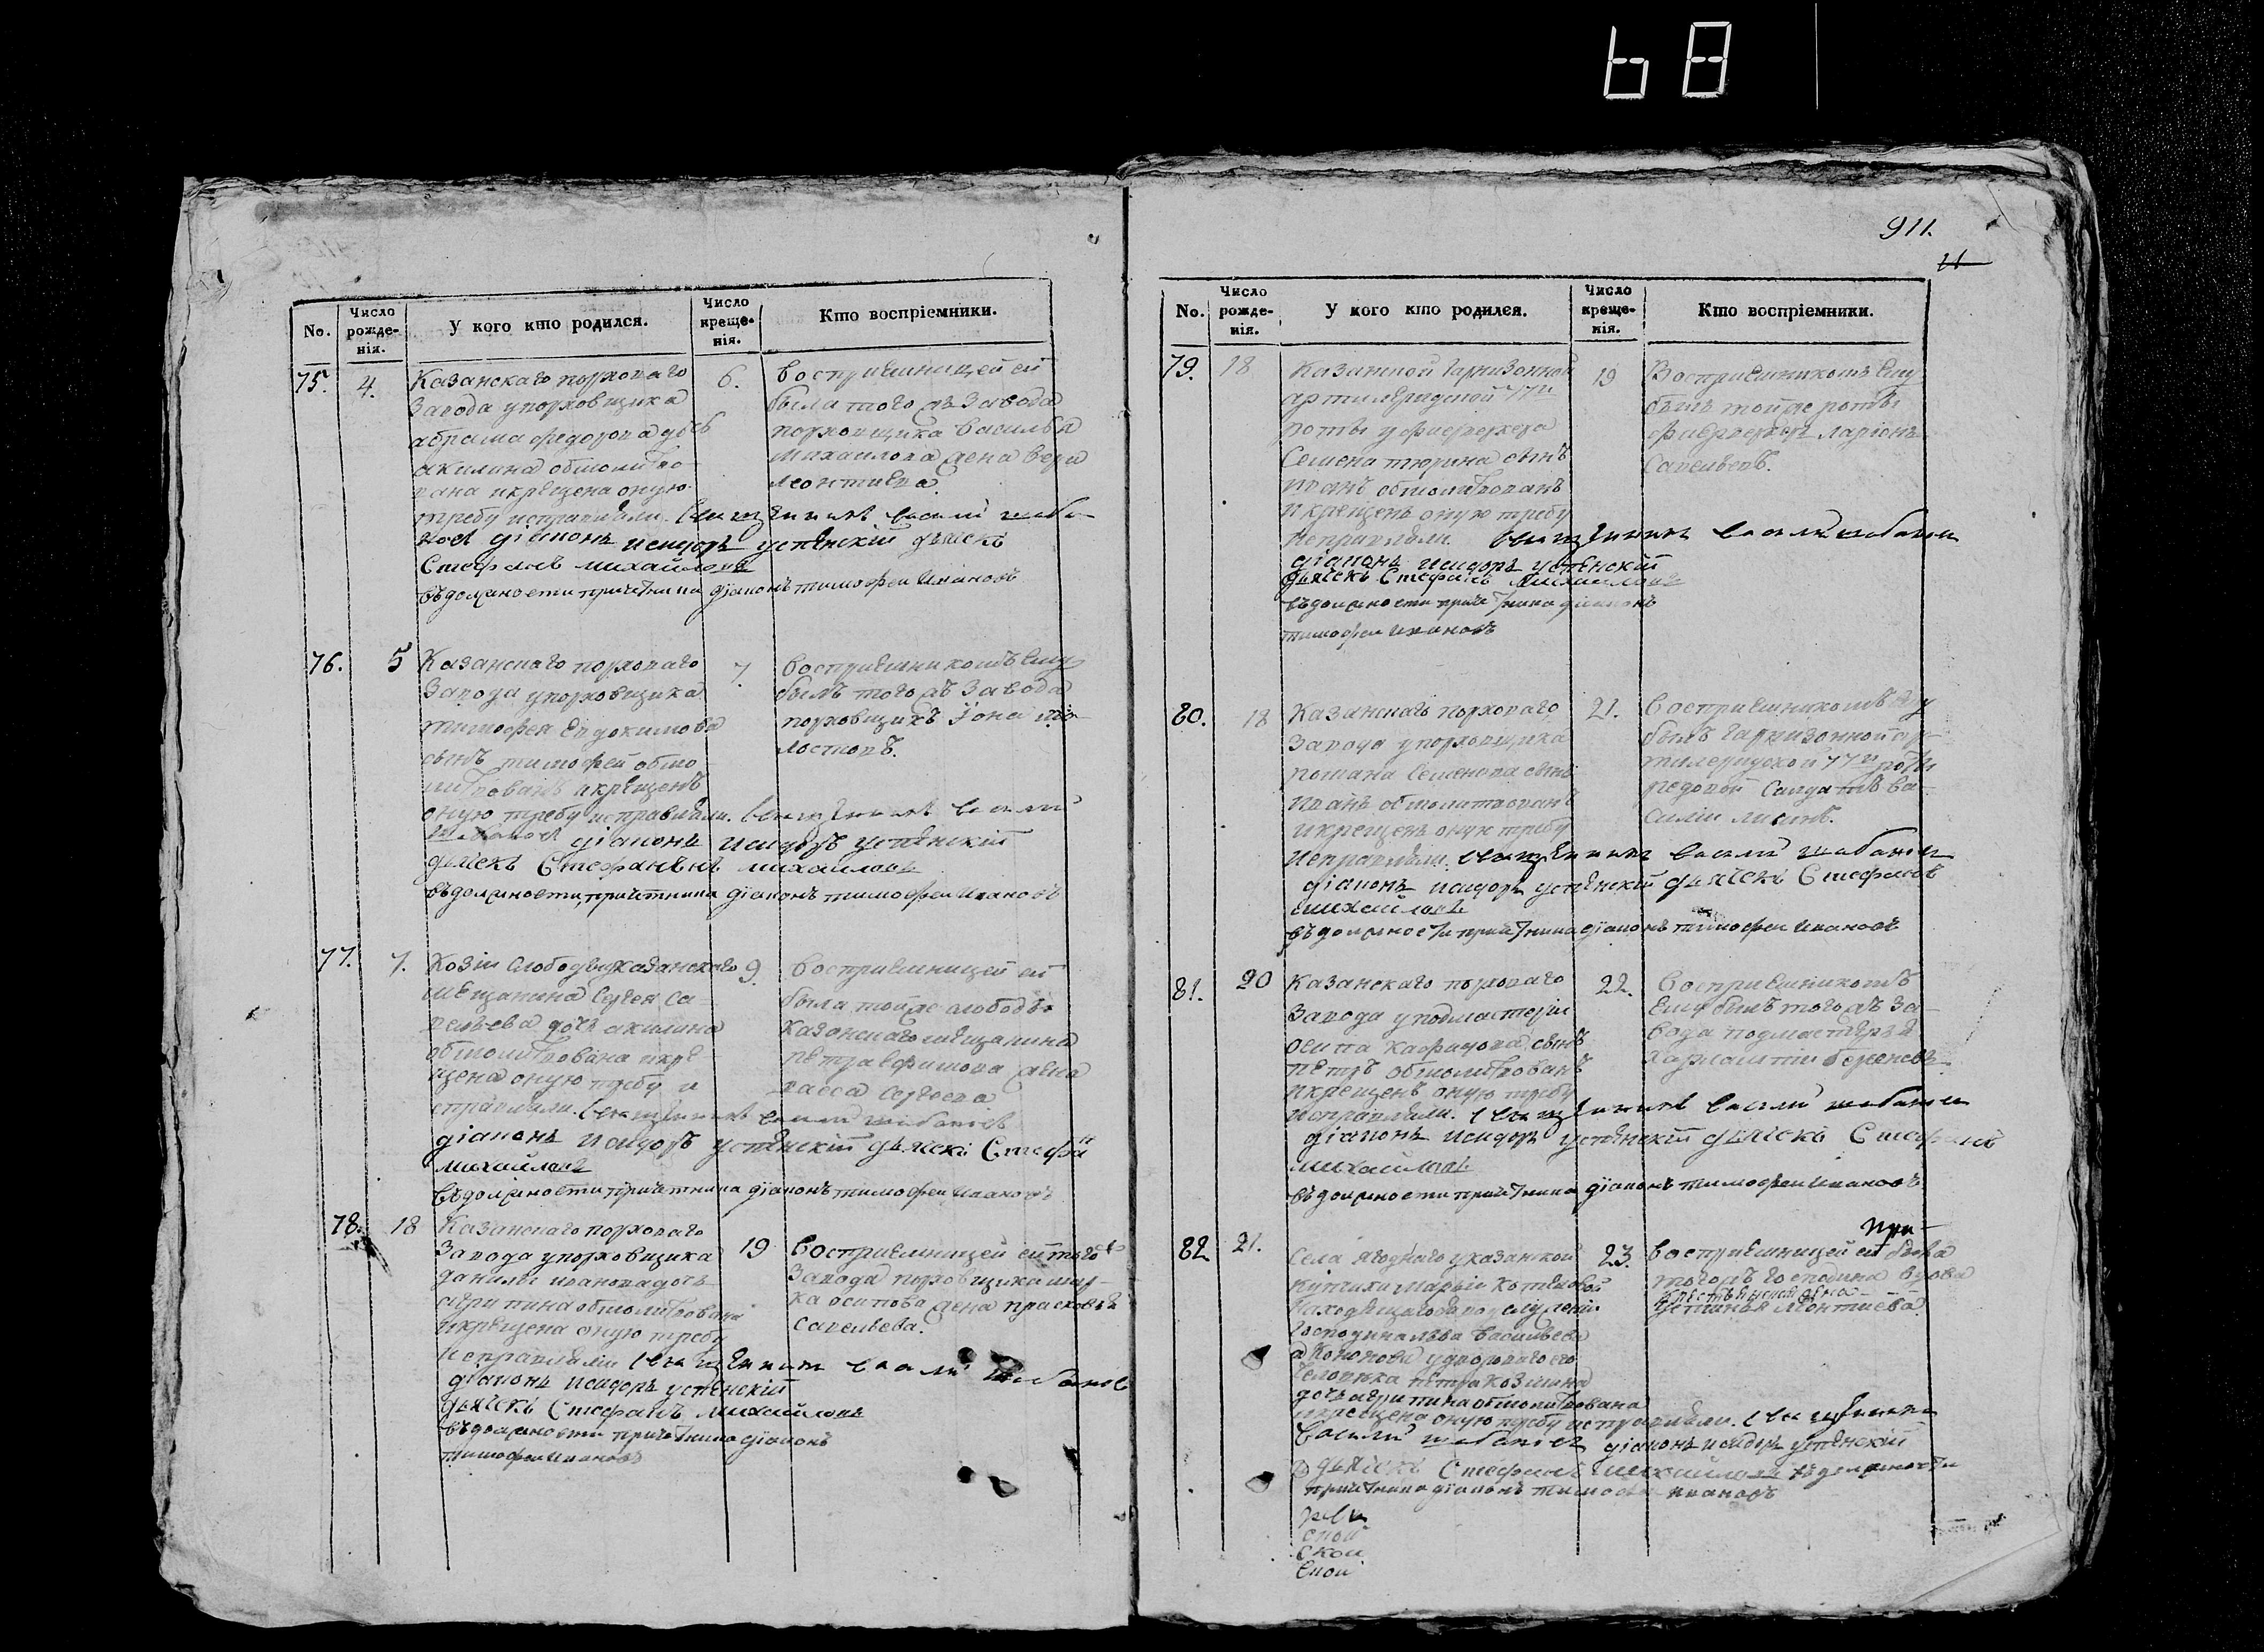 68
No.
Число рожде- нія.
У кого кто родился.
Число креще- нія.
Кто воспріемники.
75. 4. 6.
Казанскаго пороховаго
завода у пороховщика
абрама федорова дочь
акилина обмолитво-
вана и крещена оную
требу исправляли. Священникъ василій
діаконъ исидоръ успенскій дьячекъ
Стефанъ михайловъ
въ должности причетника діаконъ тимофеи Ивановъ
воспріемницей ей
была того жъ завода
пороховщика василья
михаилова жена вера
леонтиева.
76. 5 7.
Казанскаго пороховаго
завода у пороховщика
тимофея Евдокимова
сынъ тимофей обмо
литвованъ и крещенъ
оную требу исправляли. Священникъ василій
діаконъ исидоръ успенскій
дьячекъ Стефанъ михаиловъ
въ должности причетника діаконъ тимофеи Ивановъ
воспріемникомъ Ему
былъ того жъ завода
пороховщикъ Іона
77. 7. 9.
Козіи слободы казанскаго
мещанина Сергея Са-
вельева дочь акилина
обмолитвована и кре
щена оную требу и
справляли. Священникъ василій шабановъ
діаконъ исидоръ успенскій дьячекъ Стефанъ
михайловъ
въ должности причетника діаконъ тимофеи Ивановъ
воспріемницей ей
была тойже слободы
казанскаго мещанина
петра ефимова жена
васса Сергеева
78. 18 19
Казанскаго пороховаго
завода у пороховщика
данилы иванова дочь
агрипина обмолитвована
и крещена оную требу
исправляли священникъ василій шабановъ
діаконъ исидоръ успенскій
дьячекъ Стефанъ михайловъ
въ должности причетника діаконъ
тимофеи Ивановъ
воспріемницей ей того жъ
завода пороховщика
осипова жена прасковья
савельева.
911.
11
No.
Число рожде- нія.
У кого кто родился.
Число креще- нія.
Кто воспріемники.
79. 18 19
Казанской гарнизонной
артилерійской 77й
роты у фиерверкера
Семена тюрина сынъ
иванъ обмолитвованъ
и крещенъ оную требу
исправляли. священникъ василій шабановъ
діаконъ исидоръ успенскій
дьячекъ Стефанъ михаиловъ
въ должности причетника діаконъ
тимофеи Ивановъ
Воспріемникомъ Ему
былъ тойже роты
фиерверкеръ ларіонъ
Савельевъ.
80. 18 21.
Казанскаго пороховаго
завода у пороховщика
романа Семенова сынъ
иванъ обмолитвованъ
и крещенъ оную требу
исправляли. священникъ василій шабановъ
діаконъ исидоръ успенскій дьячекъ Стефанъ
михайловъ
въ должности причетника діаконъ тимофеи Ивановъ
воспріемникомъ ему
былъ гарнизонной ар-
тилерийской 77й роты
редовой Салдатъ ва-
силіи
81. 20 22.
Казанскаго пороховаго
завода у подмастерья
осипа сынъ
петръ обмолитвованъ
и крещенъ оную требу
исправляли. священникъ василій шабановъ
діаконъ исидоръ успенскій дьячекъ Стефанъ
михайловъ
въ должности причетника діаконъ тимофеи Ивановъ
Воспріемникомъ
Ему былъ того жъ за-
вода подмастерья
82 21. 23.
Села Ягоднаго у казанской
купчихи Марьи
находящагося въ услуженіи
господина льва Васильева
у двороваго его
человека петра козмина
дочь агрипина обмолитвована
и крещена оную требу исправляли. священникъ
Василій шабановъ діаконъ исидоръ успенскій
дьячекъ Стефанъ михайловъ въ должности
причетника діаконъ тимофеи Ивановъ
при-
воспріемницей ей была
тогожъ господина вдова
крестьянская жена
устинья леонтиева.